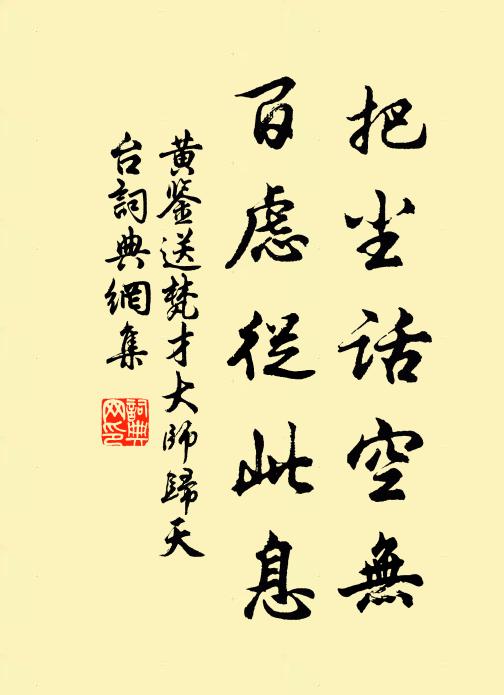 把尘话空無
百慮從此息
黄鉴送梵才大師歸天
台詞典網集
詞典
网印